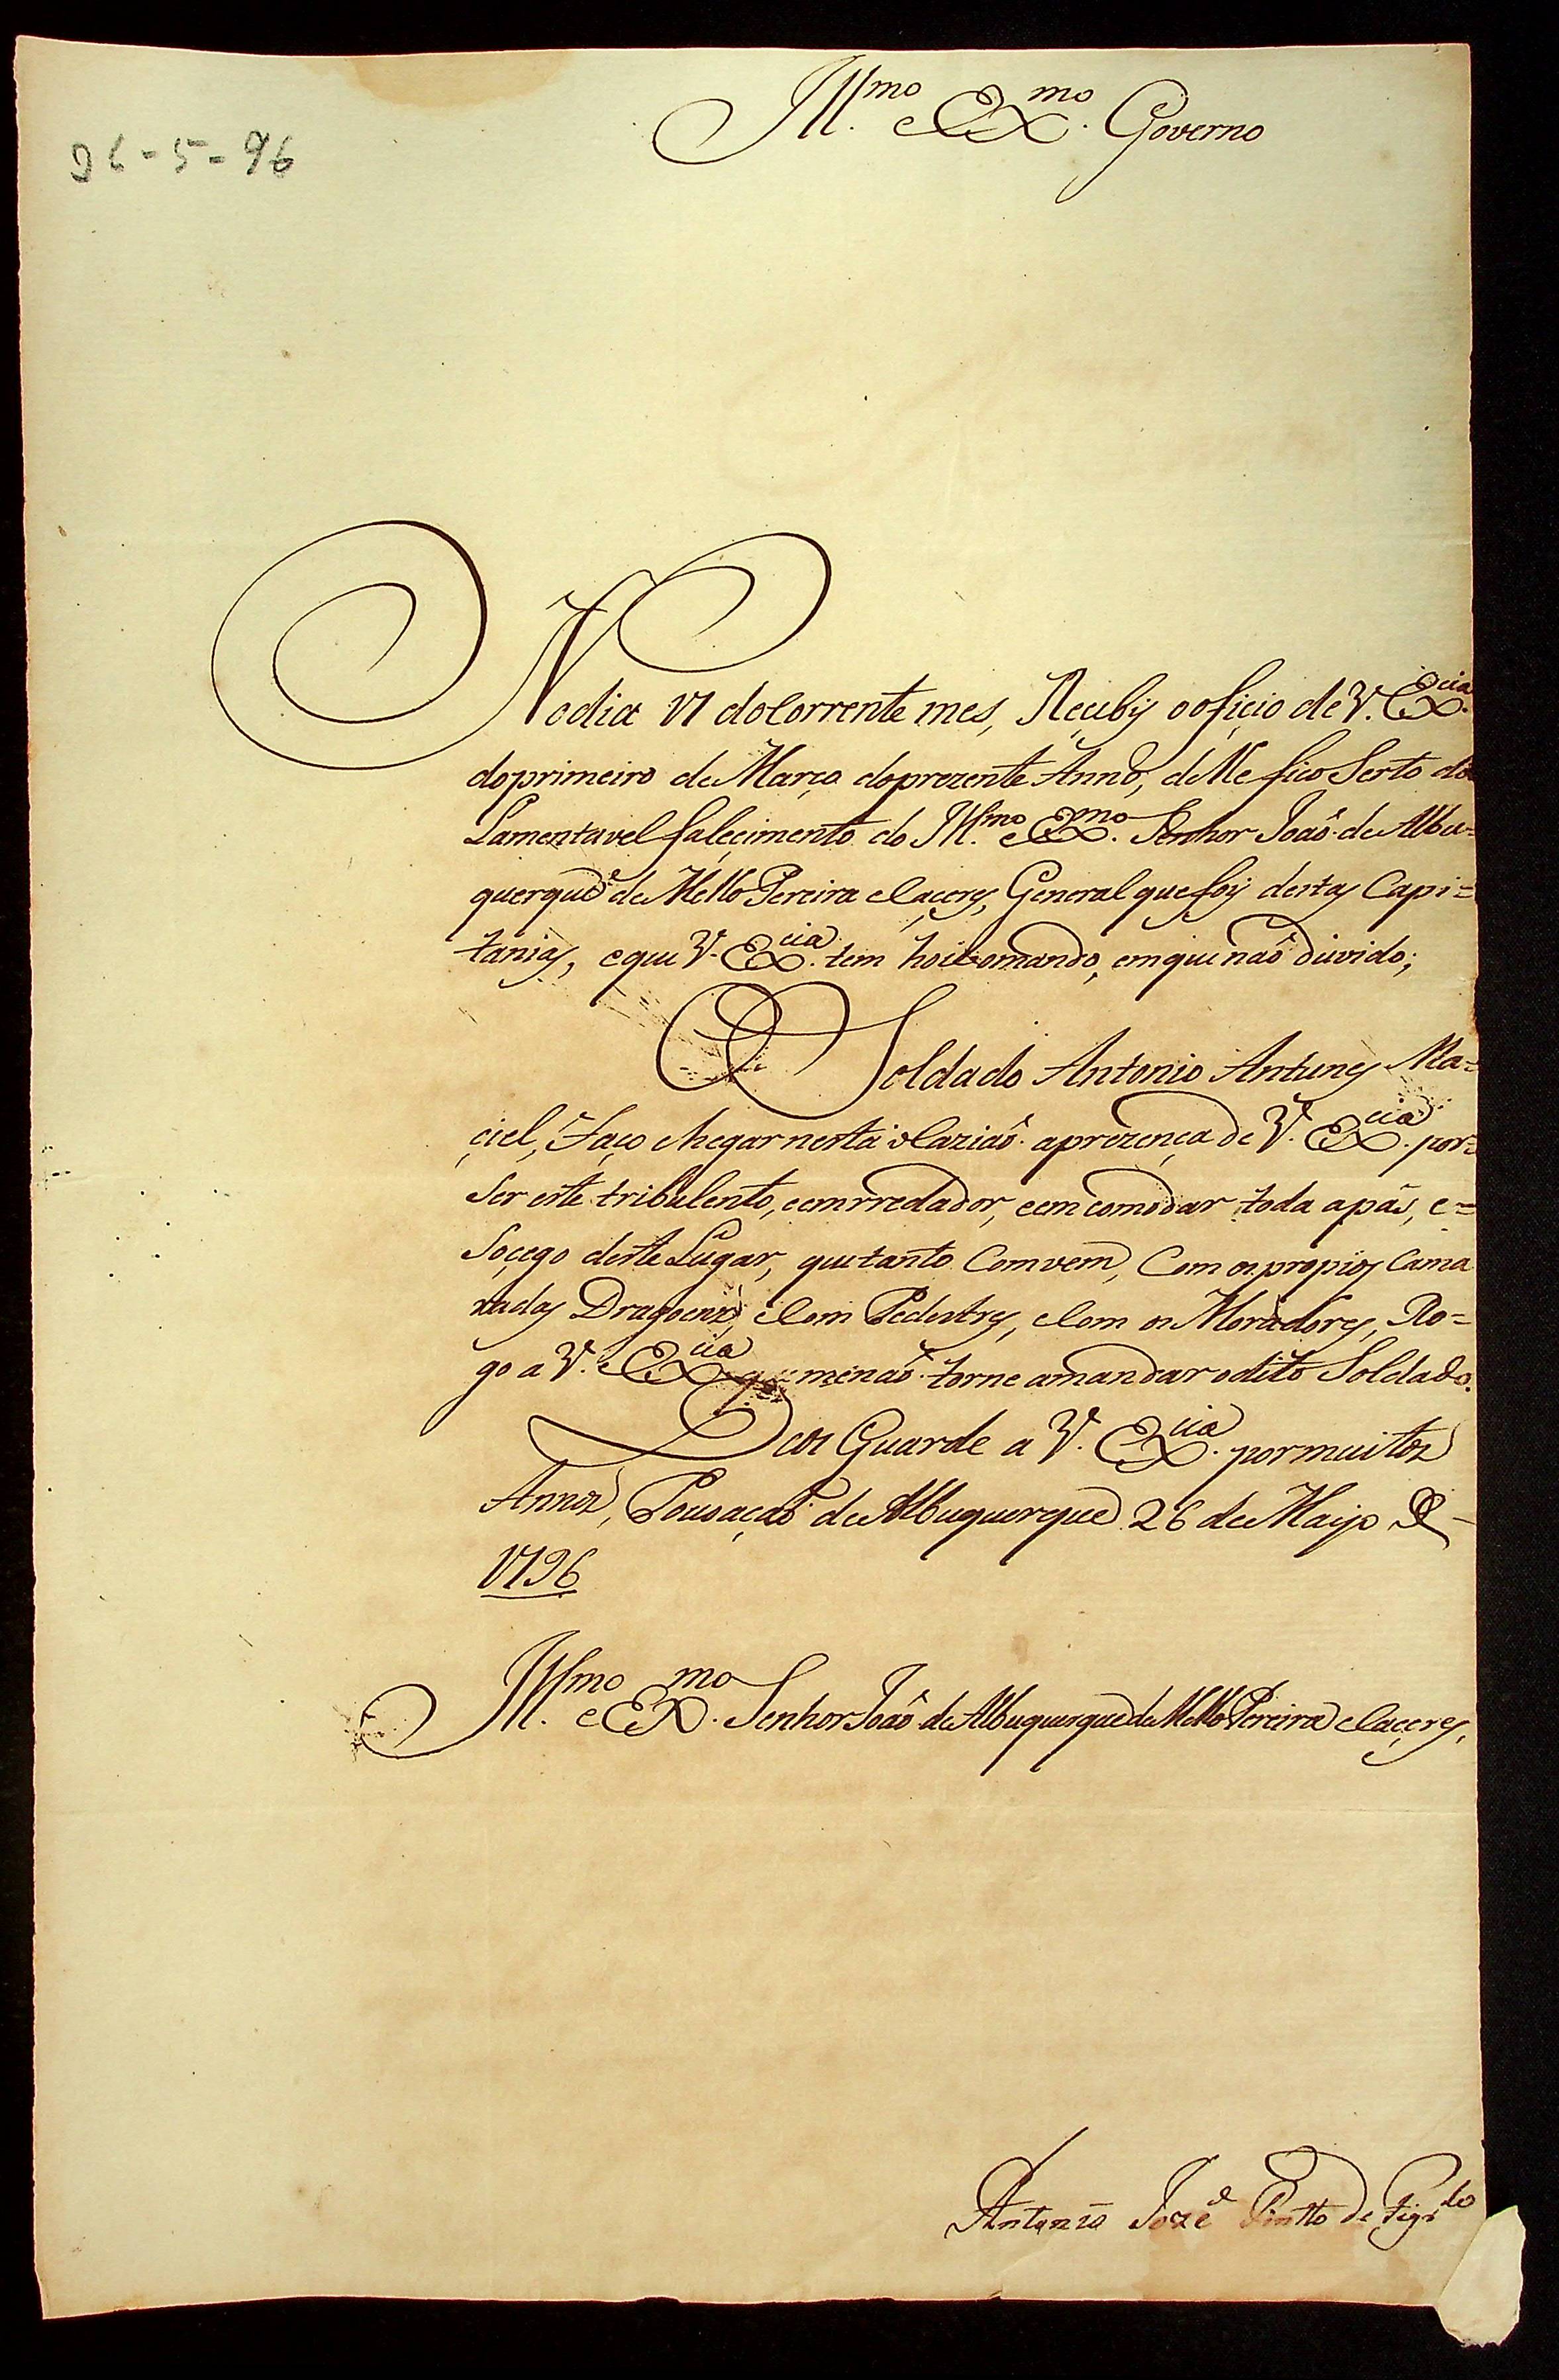 Ill.mo e Ex.mo Governo
26-5-96
No dia 17 do Corrente mes, Reçeby o ofiçio de V. Ex.cia
do primeiro de Março do prezente Anno, de Me fico Serto do
Lamentavel faleçimento do Ill.mo e Ex.mo Senhor Joaõ de Albu=
querque de Mello Pereira e Caçeres, General que foy destas Capi=
tanias, e que V. Ex.cia tem hoie omando, em que naõ duvido;
O Soldado Antonio Antunes Ma=
çiel, Faço chegar nesta oCaziaõ aprezença de V. Ex.cia por=
Ser este tribulento, e emrredador, e emcomodar toda apás, e=
Soçego deste Lugar, que tanto Comvem, Com os propios Cama
radas Dragoens, e Com Pedestres, e Com os Moradores, Ro=
go a V. Ex.cia que me naõ torne amandar o dito Soldado.
Deos Guarde a V. Ex.cia por muitos
Annos, Povoaçaõ de Albuquerque 26 de Mayo de
1796
Ill.mo e Ex.mo Senhor Joaõ de Albuquerque de Mello Pereira e Caçeres,
Antonio Joze Pintto de Figr.do